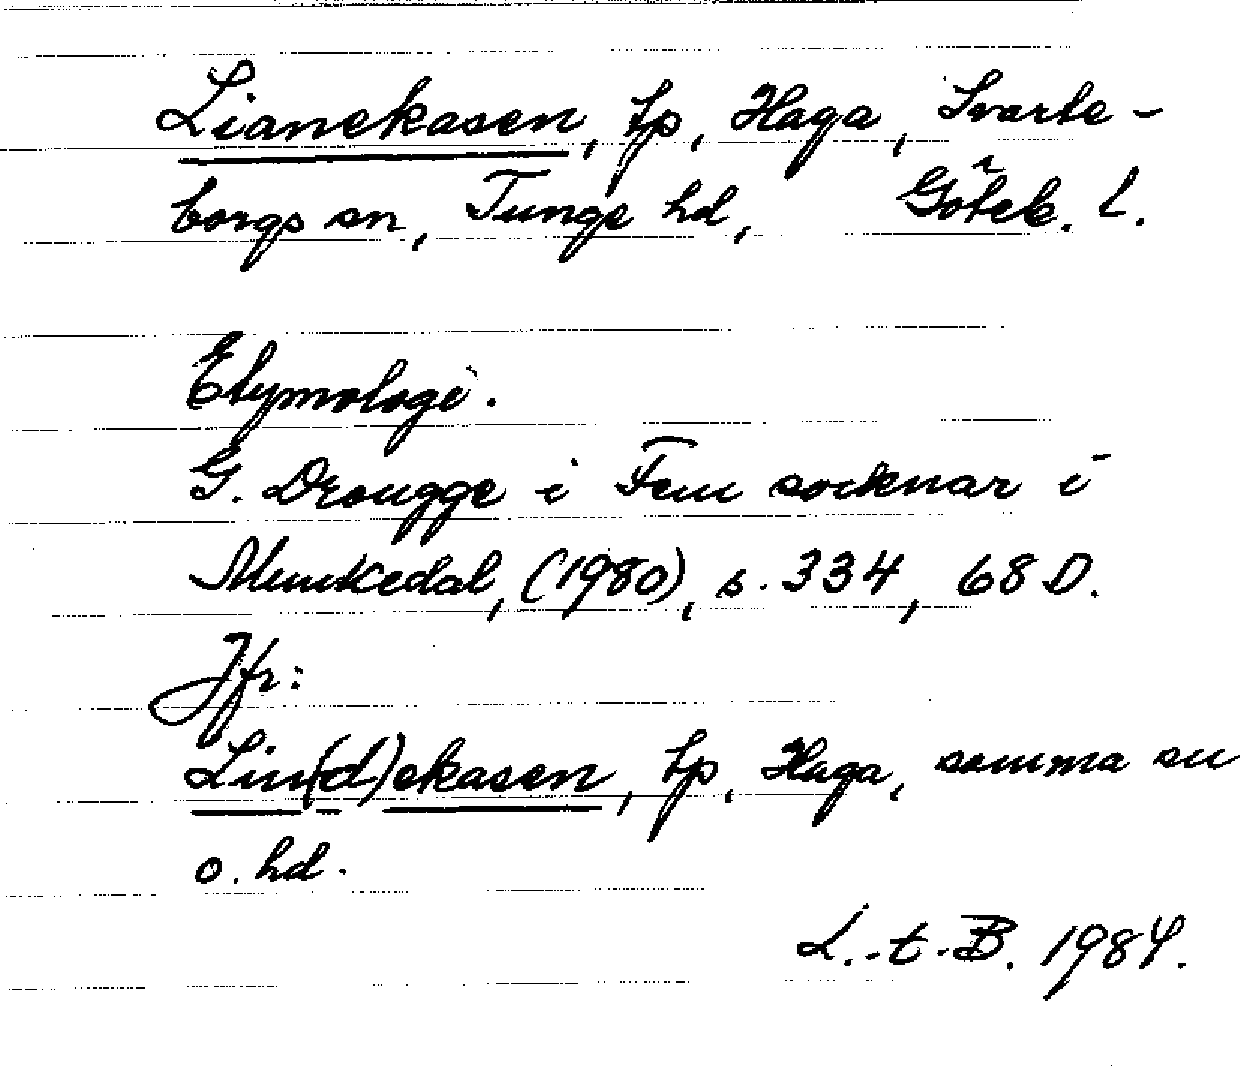 Lianekasen, tp, Haga, Svarte-
borgs sn, Tunge hd, Göteb. l.
Etymologi.
G. Drougge i Fem socknar i
Munkedal, (1980), s. 334, 68 D.
Jfr:
Lin(d)ekasen, tp, Haga, samma sn
o. hd.
L.-t.-B. 1984.